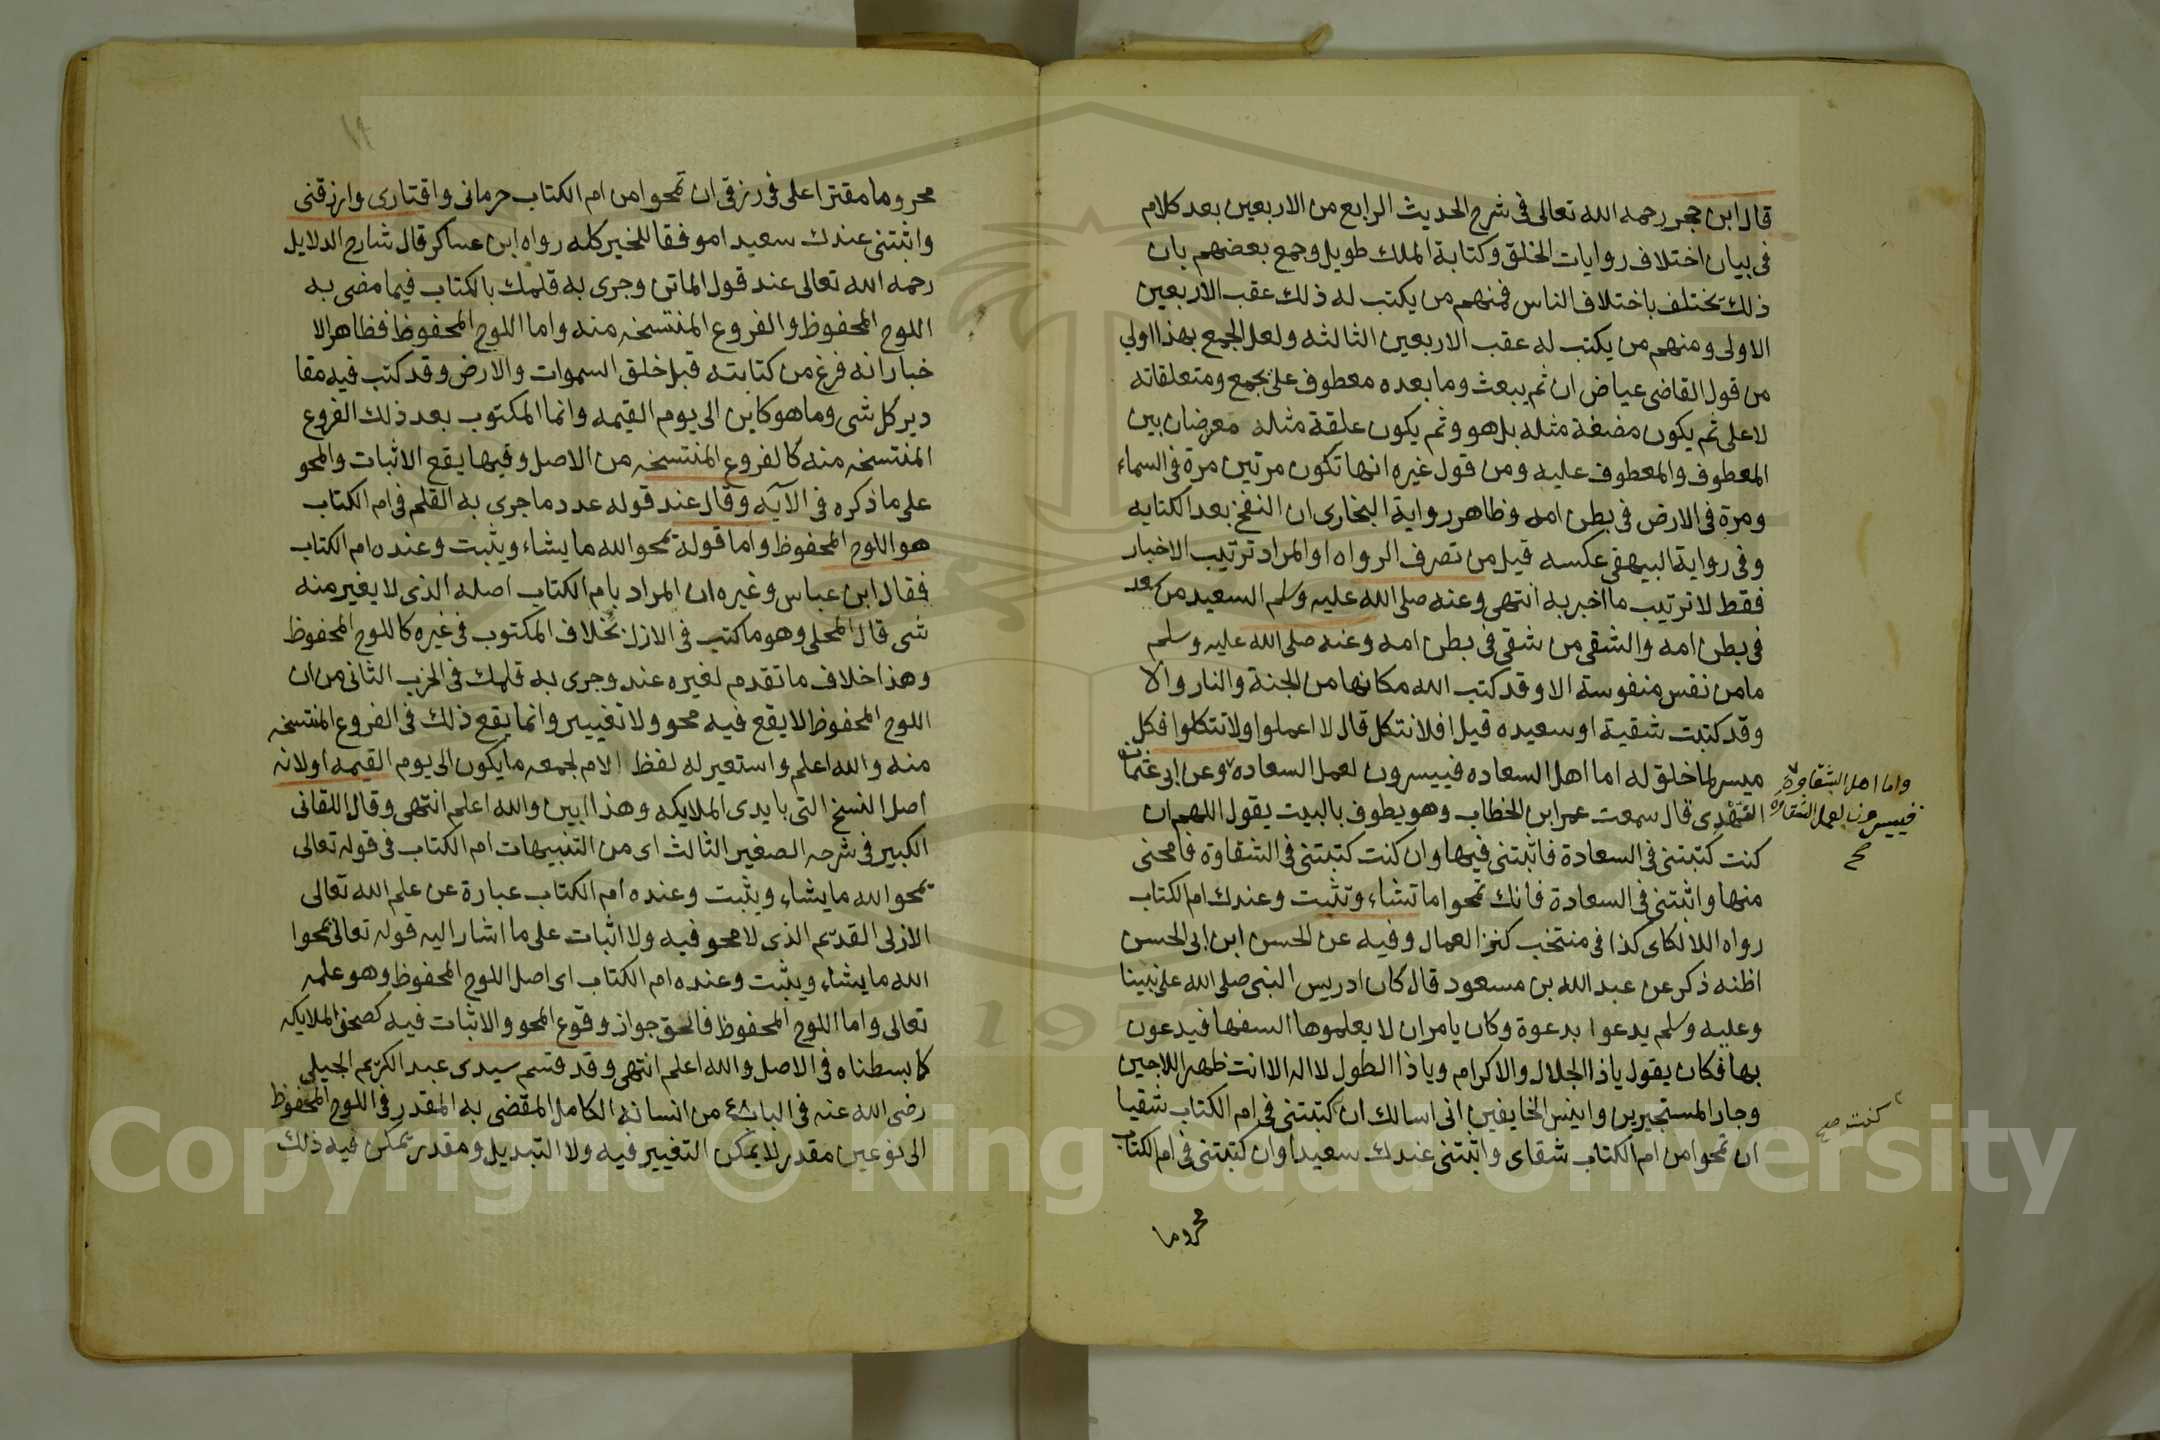 قال ابن حجر رحمه الله تعالى فى شرح الحديث الرابع من الاربعين بعد كلام
فى بيان اختلاف روايات الخلق وكتابة الملك طويل وجمع بعضهم بان
ذلك يختلف باختلاف الناس فمنهم من يكتب له ذلك عقب الاربعين
الاولى ومنهم من يكتب له عقب الاربعين الثالثه ولعل الجمع بهذا اولى
من قول القاضى عياض ان ثم يبعث وما بعده معطوف على يجمع ومتعلقاته
لا على ثم يكون مضغة مثله بل هو وثم يكون علقة مثله معرضان بين
المعطوف والمعطوف عليه ومن قول غيره انها تكون مرتين مرة فى السماء
ومرة فى الارض فى بطن امه وظاهر رواية البخارى ان النفخ بعد الكتابه
وفى رواية البيهقى عكسه قيل من تصرف الرواه او المراد ترتيب الاخبار
فقط لا ترتيب ما اخبر به انتهى وعنه صلى الله عليه وسلم السعيد من سعد
فى بطن امه والشقى من شقى فى بطن امه وعنه صلى الله عليه وسلم
ما من نفس منفوسة الا وقد كتب الله مكانها من الجنة والنار والا
وقد كتبت شقية او سعيده قيل افلا نتكل قال لا اعملوا ولا تتكلوا فكل
ميسر لما خلق له اما اهل السعاده فييسرون لعمل السعاده وعن ابى عثمان
النهدى قال سمعت عمر ابن الخطاب وهو يطوف بالبيت يقول اللهم ان
كنت كتبتنى فى السعادة فاثبتنى فيها وان كنت كتبتنى فى الشقاوة فامحنى
منها واثبتنى فى السعادة فانك تمحوا ما تشاء وتثبت وعندك ام الكتاب
رواه اللالكاى كذا فى منتخب كنز العمال وفيه عن الحسن ابن ابى الحسن
اظنه ذكر عن عبد الله بن مسعود قال كان ادريس النبى صلى الله على نبينا
وعليه وسلم يدعوا بدعوة وكان يامر ان لا يعلموها السفها فيدعون
بها فكان يقول يا ذا الجلال والاكرام ويا ذا الطول لا اله الا انت ظهر اللاجين
وجار المستجيرين وانيس الخايفين انى اسالك ان كتبتنى فى ام الكتاب شقيا
ان تمحوا من ام الكتاب شقاى واثبتنى عندك سعيدا وان كتبتنى فى ام الكتاب
محروما
واما اهل الشقاوة
فييسرون لعمل الشقاوة
صح
كنت صح
محروما مقترا على فى رزقى ان تمحوا من ام الكتاب حرمانى واقتارى وارزقنى
واثبتنى عندك سعيدا موفقا للخير كله رواه ابن عساكر قال شارح الدلايل
رحمه الله تعالى عند قول الماتن وجرى به قلمك بالكتاب فيما مضى به
اللوح المحفوظ والفروع المنتسخه منه واما اللوح المحفوظ فظاهر الا
خبار انه فرغ من كتابته قبل خلق السموات والارض وقد كتب فيه مقا
دير كل شى وما هو كاين الى يوم القيمه وانما المكتوب بعد ذلك الفروع
المنتسخه منه كالفروع المنتسخه من الاصل وفيها يقع الاثبات والمحو
على ما ذكره فى الآيه وقال عند قوله عدد ما جرى به القلم فى ام الكتاب
هو اللوح المحفوظ واما قوله تمحو الله ما يشاء ويثبت وعنده ام الكتاب
فقال ابن عباس وغيره ان المراد بام الكتاب اصله الذى لا يغير منه
شى قال المحلى وهو ما كتب فى الازل بخلاف المكتوب فى غيره كاللوح المحفوظ
وهذا خلاف ما تقدم لغيره عند وجرى به قلمك فى الحزب الثانى من ان
اللوح المحفوظ لا يقع فيه محو ولا تغيير وانما يقع ذلك فى الفروع المنتسخه
منه والله اعلم واستعير له لفظ الام لجمعه ما يكون الى يوم القيمه او لانه
اصل النسخ التى بايدى الملايكه وهذا ابين والله اعلم انتهى وقال اللقانى
الكبير فى شرحه الصغير الثالث اى من التنبيهات ام الكتاب فى قوله تعالى
يمحو الله ما يشاء ويثبت وعنده ام الكتاب عبارة عن علم الله تعالى
الازلى القديم الذى لا محو فيه ولا اثبات على ما اشار اليه قوله تعالى يمحوا
الله ما يشاء ويثبت وعنده ام الكتاب اى اصل اللوح المحفوظ وهو علمه
تعالى واما اللوح المحفوظ فالحق جواز وقوع المحو والاثبات فيه كصحف الملايكه
كما بسطناه فى الاصل والله اعلم انتهى وقد قسم سيدى عبد الكريم الجيلى
رضى الله عنه فى الباب ٤٨ من انسانه الكامل المقضى به المقدر فى اللوح المحفوظ
الى نوعين مقدر لا يمكن التغيير فيه ولا التبديل ومقدر تمكن فيه ذلك
١٩
Copyright © King Saud University
195